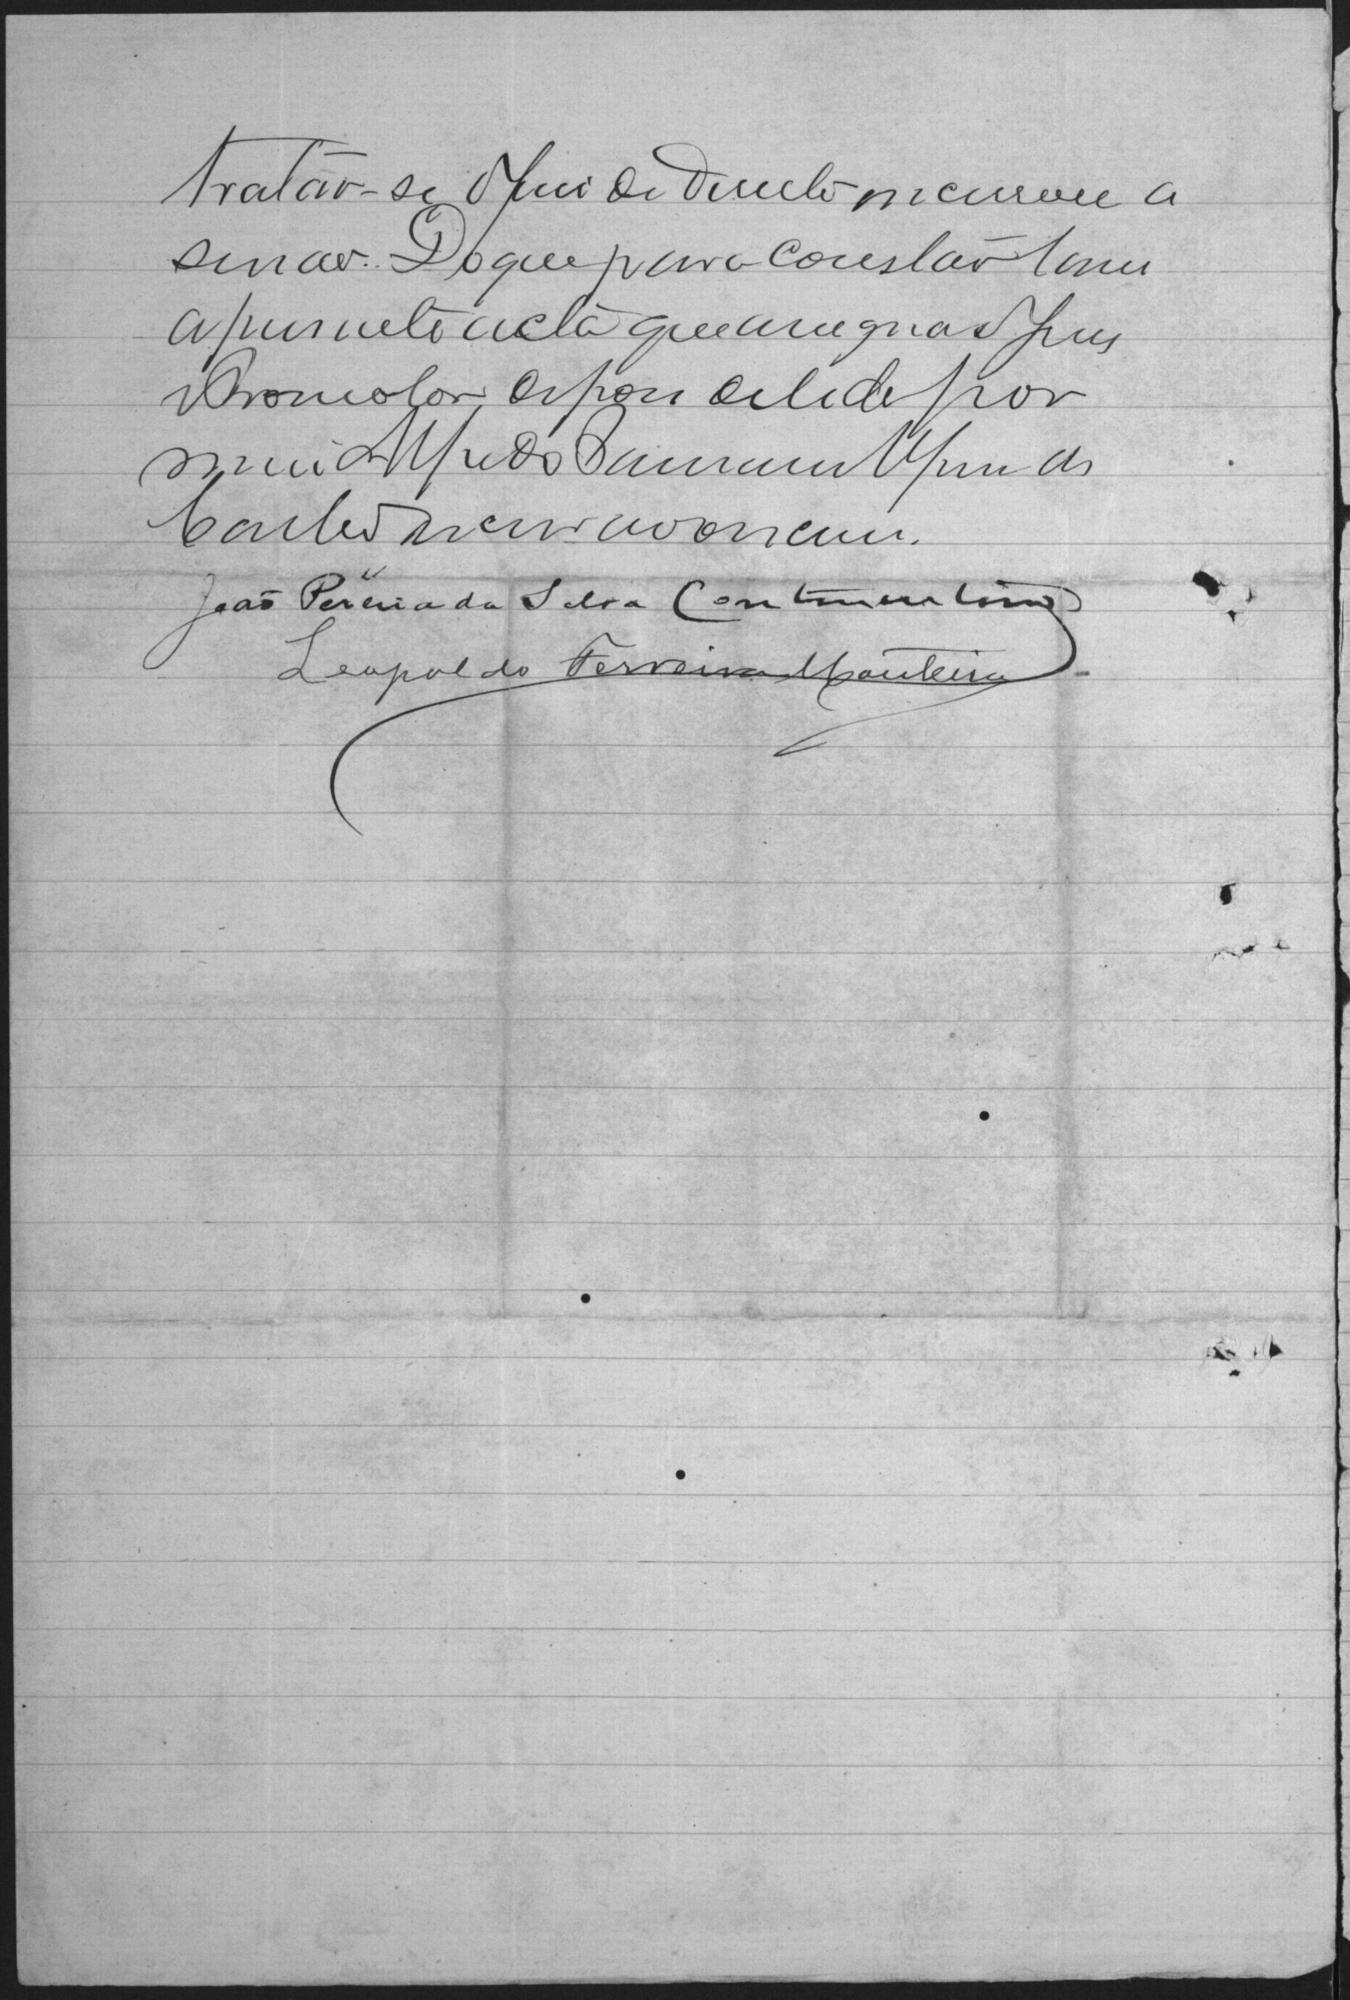 tratár-se o Juiz de Direito encerrou a
sessão. Do que para constár lavrei
a presente acta que assigna o Juiz
e Promotor depois de lida por
mim Alfredo
escrivão o escrevi.
João Pereira da Silva Continentino
Leopoldo Ferreira Monteiro